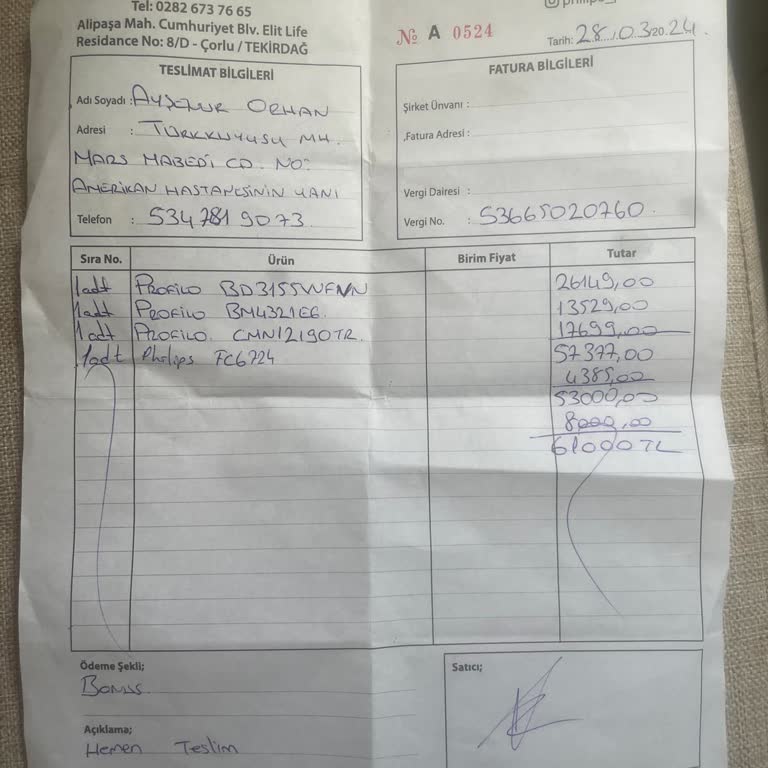 Tel: 0282 673 76 65
Alipaşa Mah. Cumhuriyet Blv. Elit Life
Residance No: 8/D - Çorlu / TEKİRDAĞ
№ A 0524
Tarih: 28.03.2024.
TESLİMAT BİLGİLERİ
Adı Soyadı : AYŞENUR ORHAN
Adresi : TÜRKKUYUSU MH.
MARS MABEDİ CD. NO:
AMERİKAN HASTANESİNİN YANI
Telefon : 534 7819073
FATURA BİLGİLERİ
Şirket Ünvanı :
Fatura Adresi :
Vergi Dairesi :
Vergi No. : 53665020760.
Sıra No. Ürün Birim Fiyat Tutar
1adt PROFİLO BD3155WFNN 26149,00
1adt PROFİLO BM4321EG. 13529,00
1adt PROFİLO. CMN12190TR. 17699,00
1adt Philips FC6724 57377,00
4385,00
53000,00
8000,00
61000TL
Ödeme Şekli;
BONUS.
Açıklama;
Hemen Teslim
Satıcı;